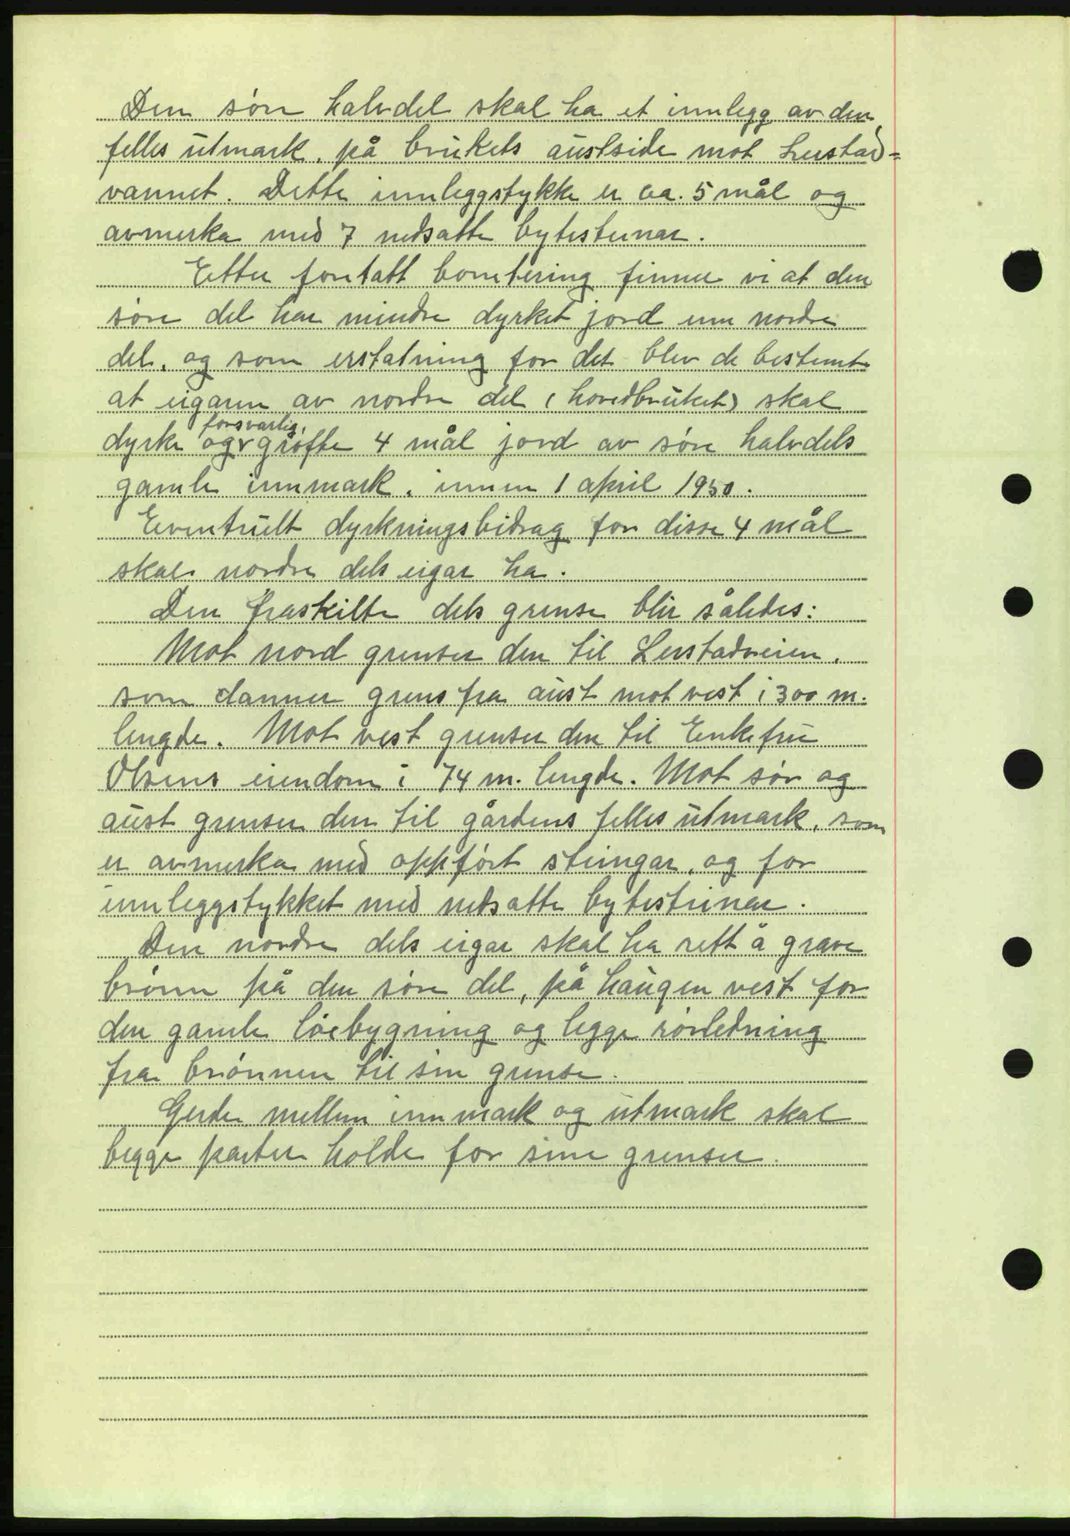 Den søre halvdel skal ha et innlegg av den
felles utmark, på brukets austside mot Leistad=
vannet. Dette innleggstykke er ca. 5 mål og
avmerka med 7 nedsatte bytesteinar.
Etter foretatt bonitering finner vi at den
søre del har mindre dyrket jord enn nordre
del, og som erstatning for det blev de bestemt
at eigaren av nordre del (hovedbruket) skal
dyrke og forsvarlig grøfte 4 mål jord av søre halvdels
gamle innmark, innen 1 april 1950.
Eventuelt dyrkningsbidrag for disse 4 mål
skal nordre dels eigar ha.
Den fraskilte dels grense blir således:
Mot nord grenser den til Leistadveien,
som danner grens fra aust mot vest i 300 m.
lengde. Mot vest grenser den til Enkefru
Olsens eiendom i 74 m. lengde. Mot sør og
aust grenser den til gårdens felles utmark, som
er avmerka med oppført steingar, og for
innleggstykket med nedsatte bytesteinar.
Den nordre dels eigar skal ha rett å grave
brønn på den søre del, på haugen vest for
den gamle løebygning og legge rørledning
fra brønnen til sin grense.
Gjerde mellem innmark og utmark skal
begge parter holde for sine grenser.